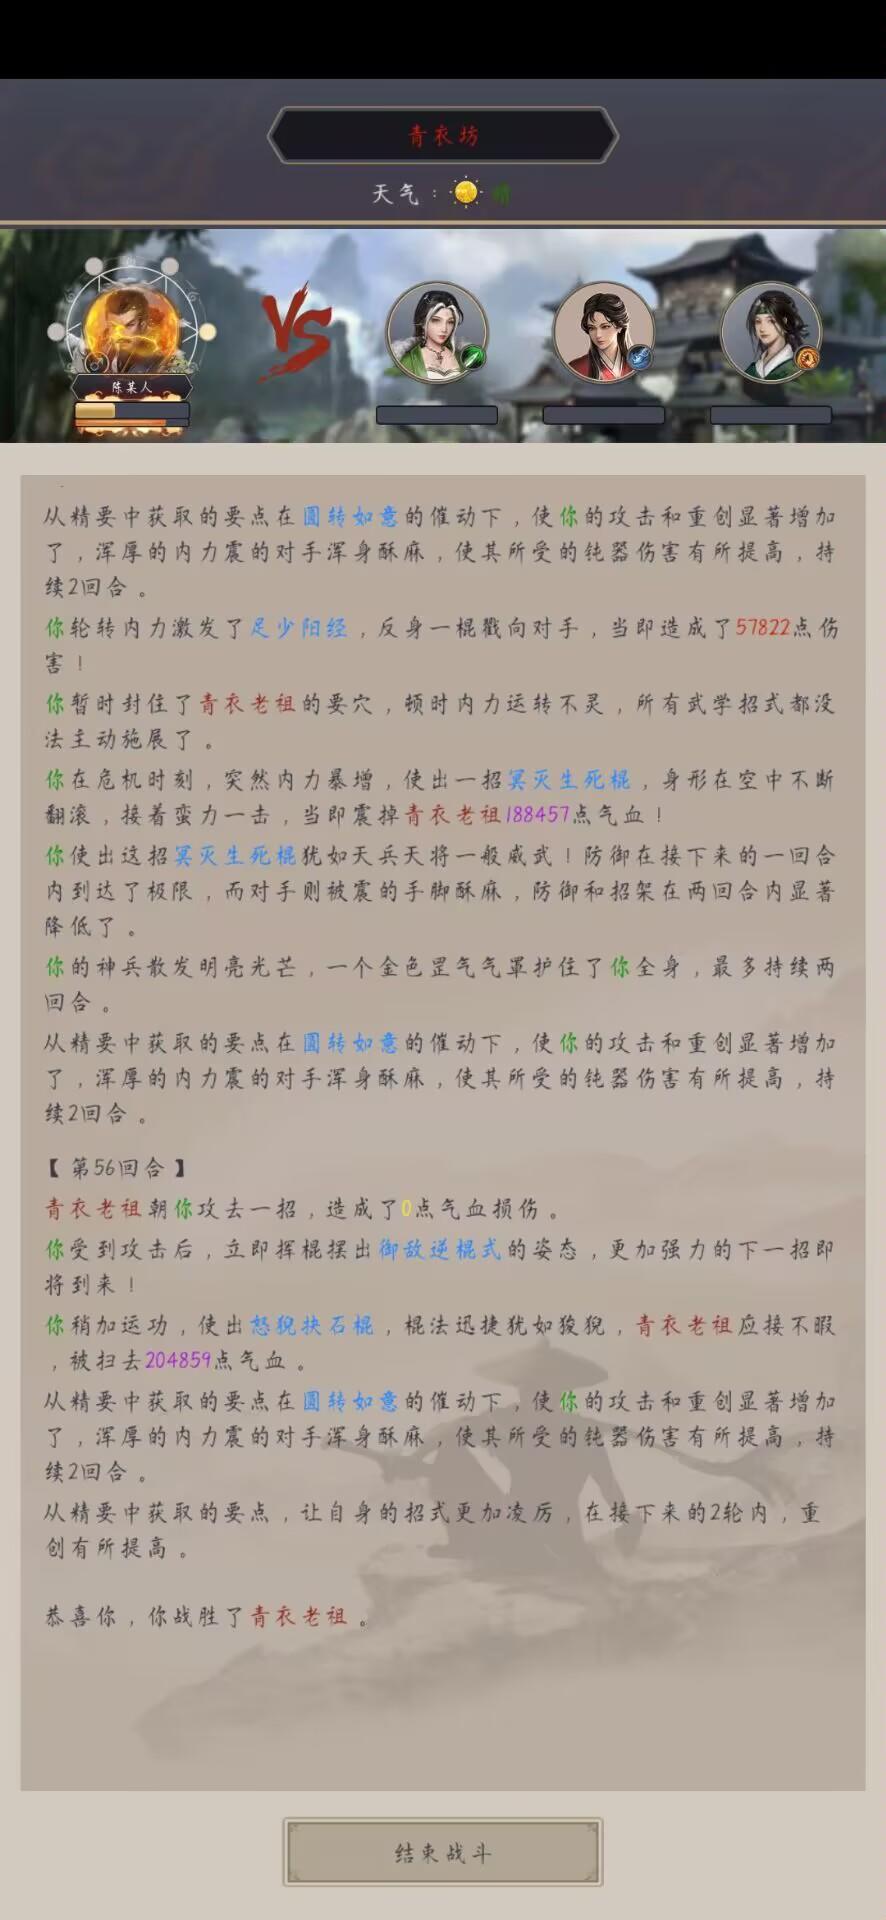 青衣坊
天气：晴
VS
陈某人
从精要中获取的要点在圆转如意的催动下，使你的攻击和重创显著增加
了，浑厚的内力震的对手浑身酥麻，使其所受的钝器伤害有所提高，持
续2回合。
你轮转内力激发了足少阳经，反身一棍戳向对手，当即造成了57822点伤
害！
你暂时封住了青衣老祖的要穴，顿时内力运转不灵，所有武学招式都没
法主动施展了。
你在危机时刻，突然内力暴增，使出一招冥灭生死棍，身形在空中不断
翻滚，接着蛮力一击，当即震掉青衣老祖188457点气血！
你使出这招冥灭生死棍犹如天兵天将一般威武！防御在接下来的一回合
内到达了极限，而对手则被震的手脚酥麻，防御和招架在两回合内显著
降低了。
你的神兵散发明亮光芒，一个金色罡气气罩护住了你全身，最多持续两
回合。
从精要中获取的要点在圆转如意的催动下，使你的攻击和重创显著增加
了，浑厚的内力震的对手浑身酥麻，使其所受的钝器伤害有所提高，持
续2回合。
【第56回合】
青衣老祖朝你攻去一招，造成了0点气血损伤。
你受到攻击后，立即挥棍摆出御敌逆棍式的姿态，更加强力的下一招即
将到来！
你稍加运功，使出怒猊抉石棍，棍法迅捷犹如狻猊，青衣老祖应接不暇
，被扫去204859点气血。
从精要中获取的要点在圆转如意的催动下，使你的攻击和重创显著增加
了，浑厚的内力震的对手浑身酥麻，使其所受的钝器伤害有所提高，持
续2回合。
从精要中获取的要点，让自身的招式更加凌厉，在接下来的2轮内，重
创有所提高。
恭喜你，你战胜了青衣老祖。
结束战斗